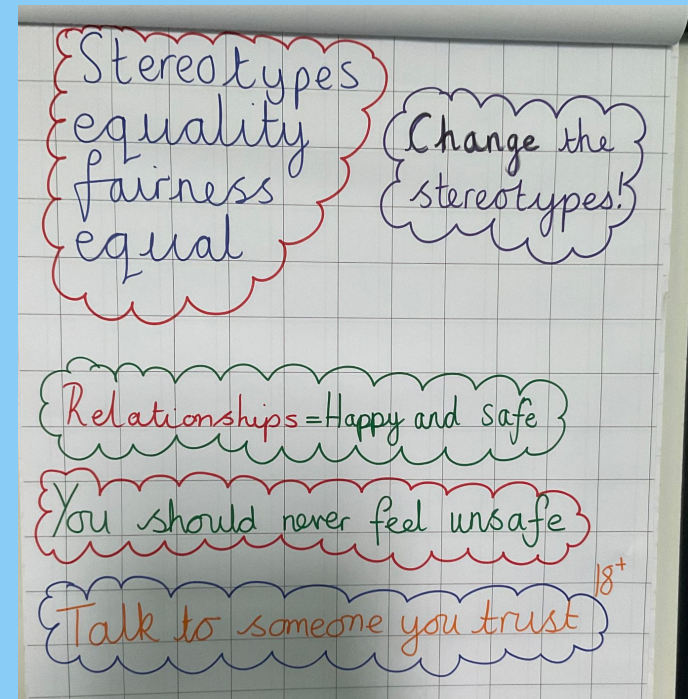 Stereotypes
equality
fairness
equal
Change the
stereotypes!
Relationships = Happy and safe
You should never feel unsafe
18+
Talk to someone you trust